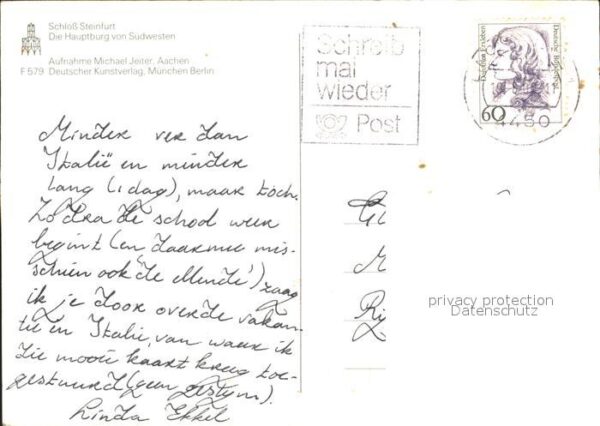 Schloß Steinfurt
Die Hauptburg von Südwesten
Aufnahme Michael Jeiter, Aachen
F 579 Deutscher Kunstverlag, München Berlin
Schreib
mal
wieder
Post
Dorothea Erxleben
Deutsche Bundespost
60
4450
Minder ver dan
"Italië" en minder
lang (1 dag), maar toch.
Zodra de school weer
begint (en daarmee mis-
schien ook 'de Mende') zaag
ik je door over de vakan-
tie in Italië, van waar ik
die mooie kaart kreeg toe-
gestuurd (geen)
Linda Ekkel
Gi
M
Rij
privacy protection
Datenschutz